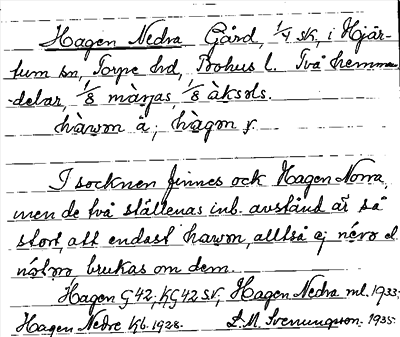 Hagen Nedra Gård, 1/4 sk, i Hjär-
tum sn, Torpe hd, Bohus l. Två hemman-
-delar, 1/8 mànjas, 1/8 àksols.
hàwon å; hàgon y.
I socknen finnes ock Hagen Norra,
men de två ställenas inb. avstånd är så
stort, att endast hawon, alltså ej néro el.
nóloro brukas om dem.
Hagen G 42; KG 42 SV; Hagen Nedra ml. 1933;
Hagen Nedre Kb. 1928. L.M. Svenungson. 1935.